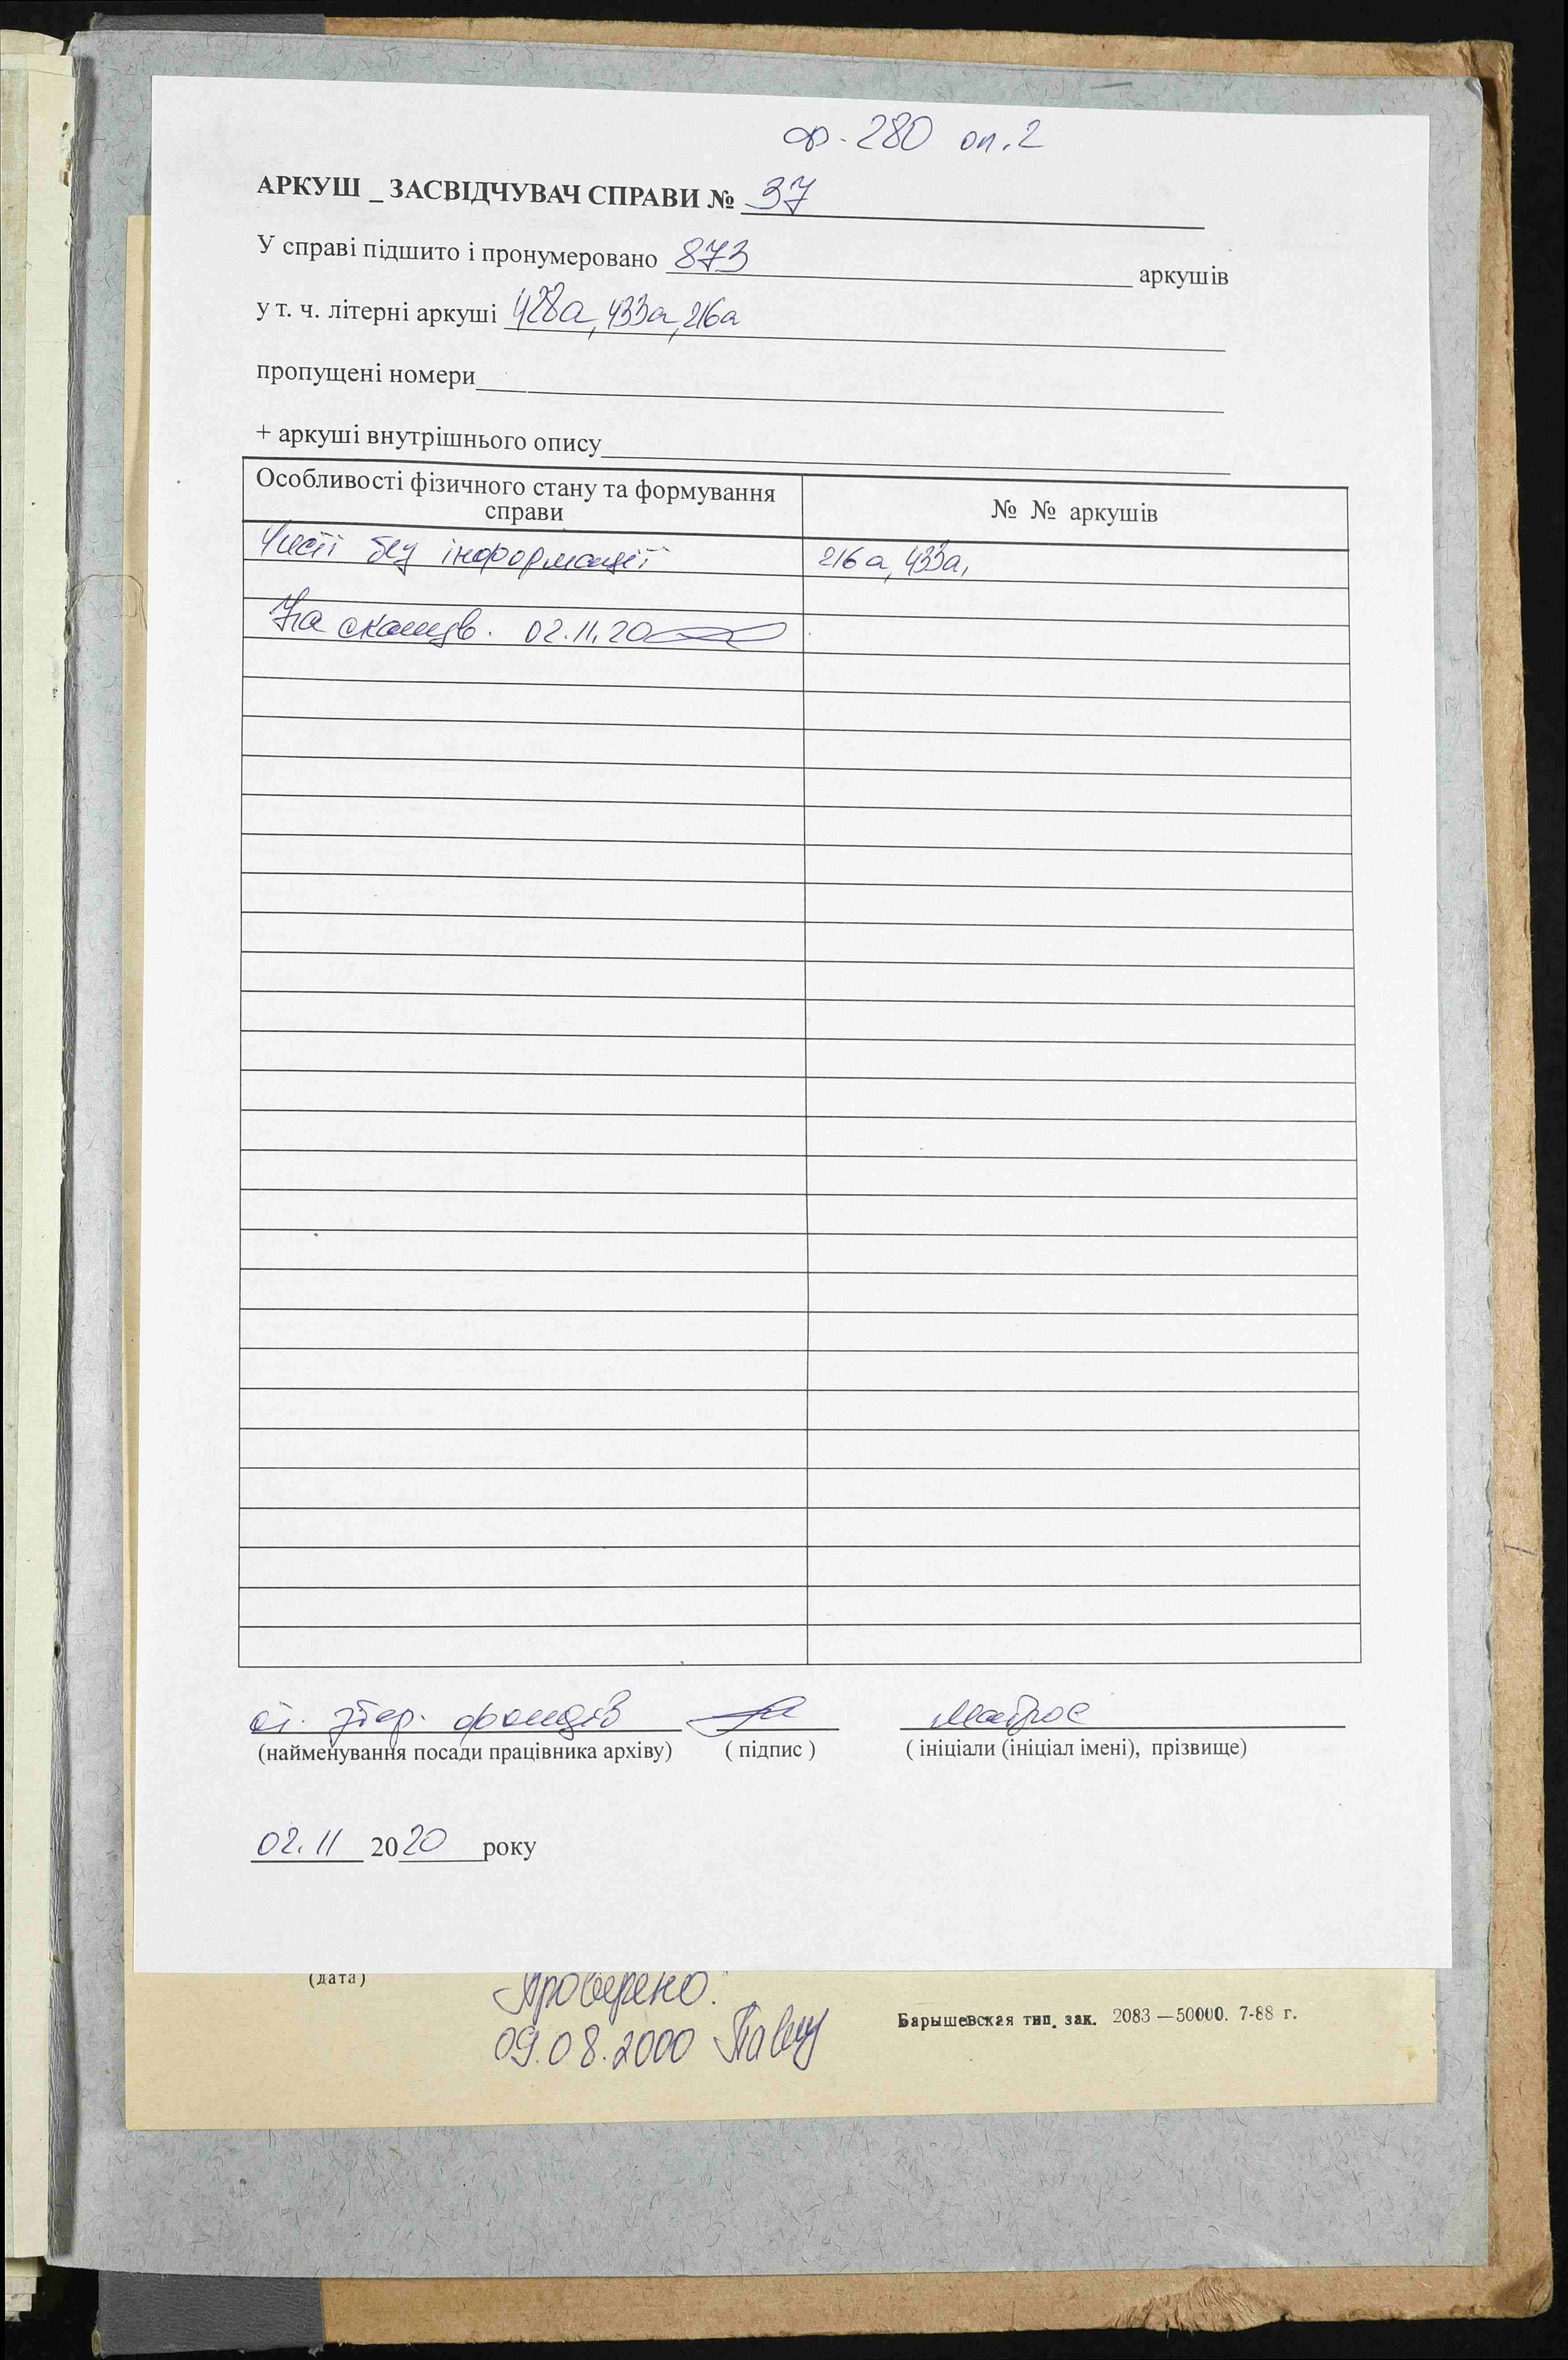 ф. 280 оп. 2
АРКУШ _ ЗАСВІДЧУВАЧ СПРАВИ № 37
У справі підшито і пронумеровано 873 аркушів
у т. ч. літерні аркуші 428а, 433а, 216а
пропущені номери
+ аркуші внутрішнього опису
Особливості фізичного стану та формування
справи
№ № аркушів
Чисті без інформації 216а, 433а,
На сканув. 02.11.20
ст. збер. фондів Матрос
(найменування посади працівника архіву) ( підпис ) ( ініціали (ініціал імені), прізвище)
02.11 2020 року
(дата)
Проверено.
09.08.2000
Барышевская тип. зак. 2083 —50000. 7-88 г.